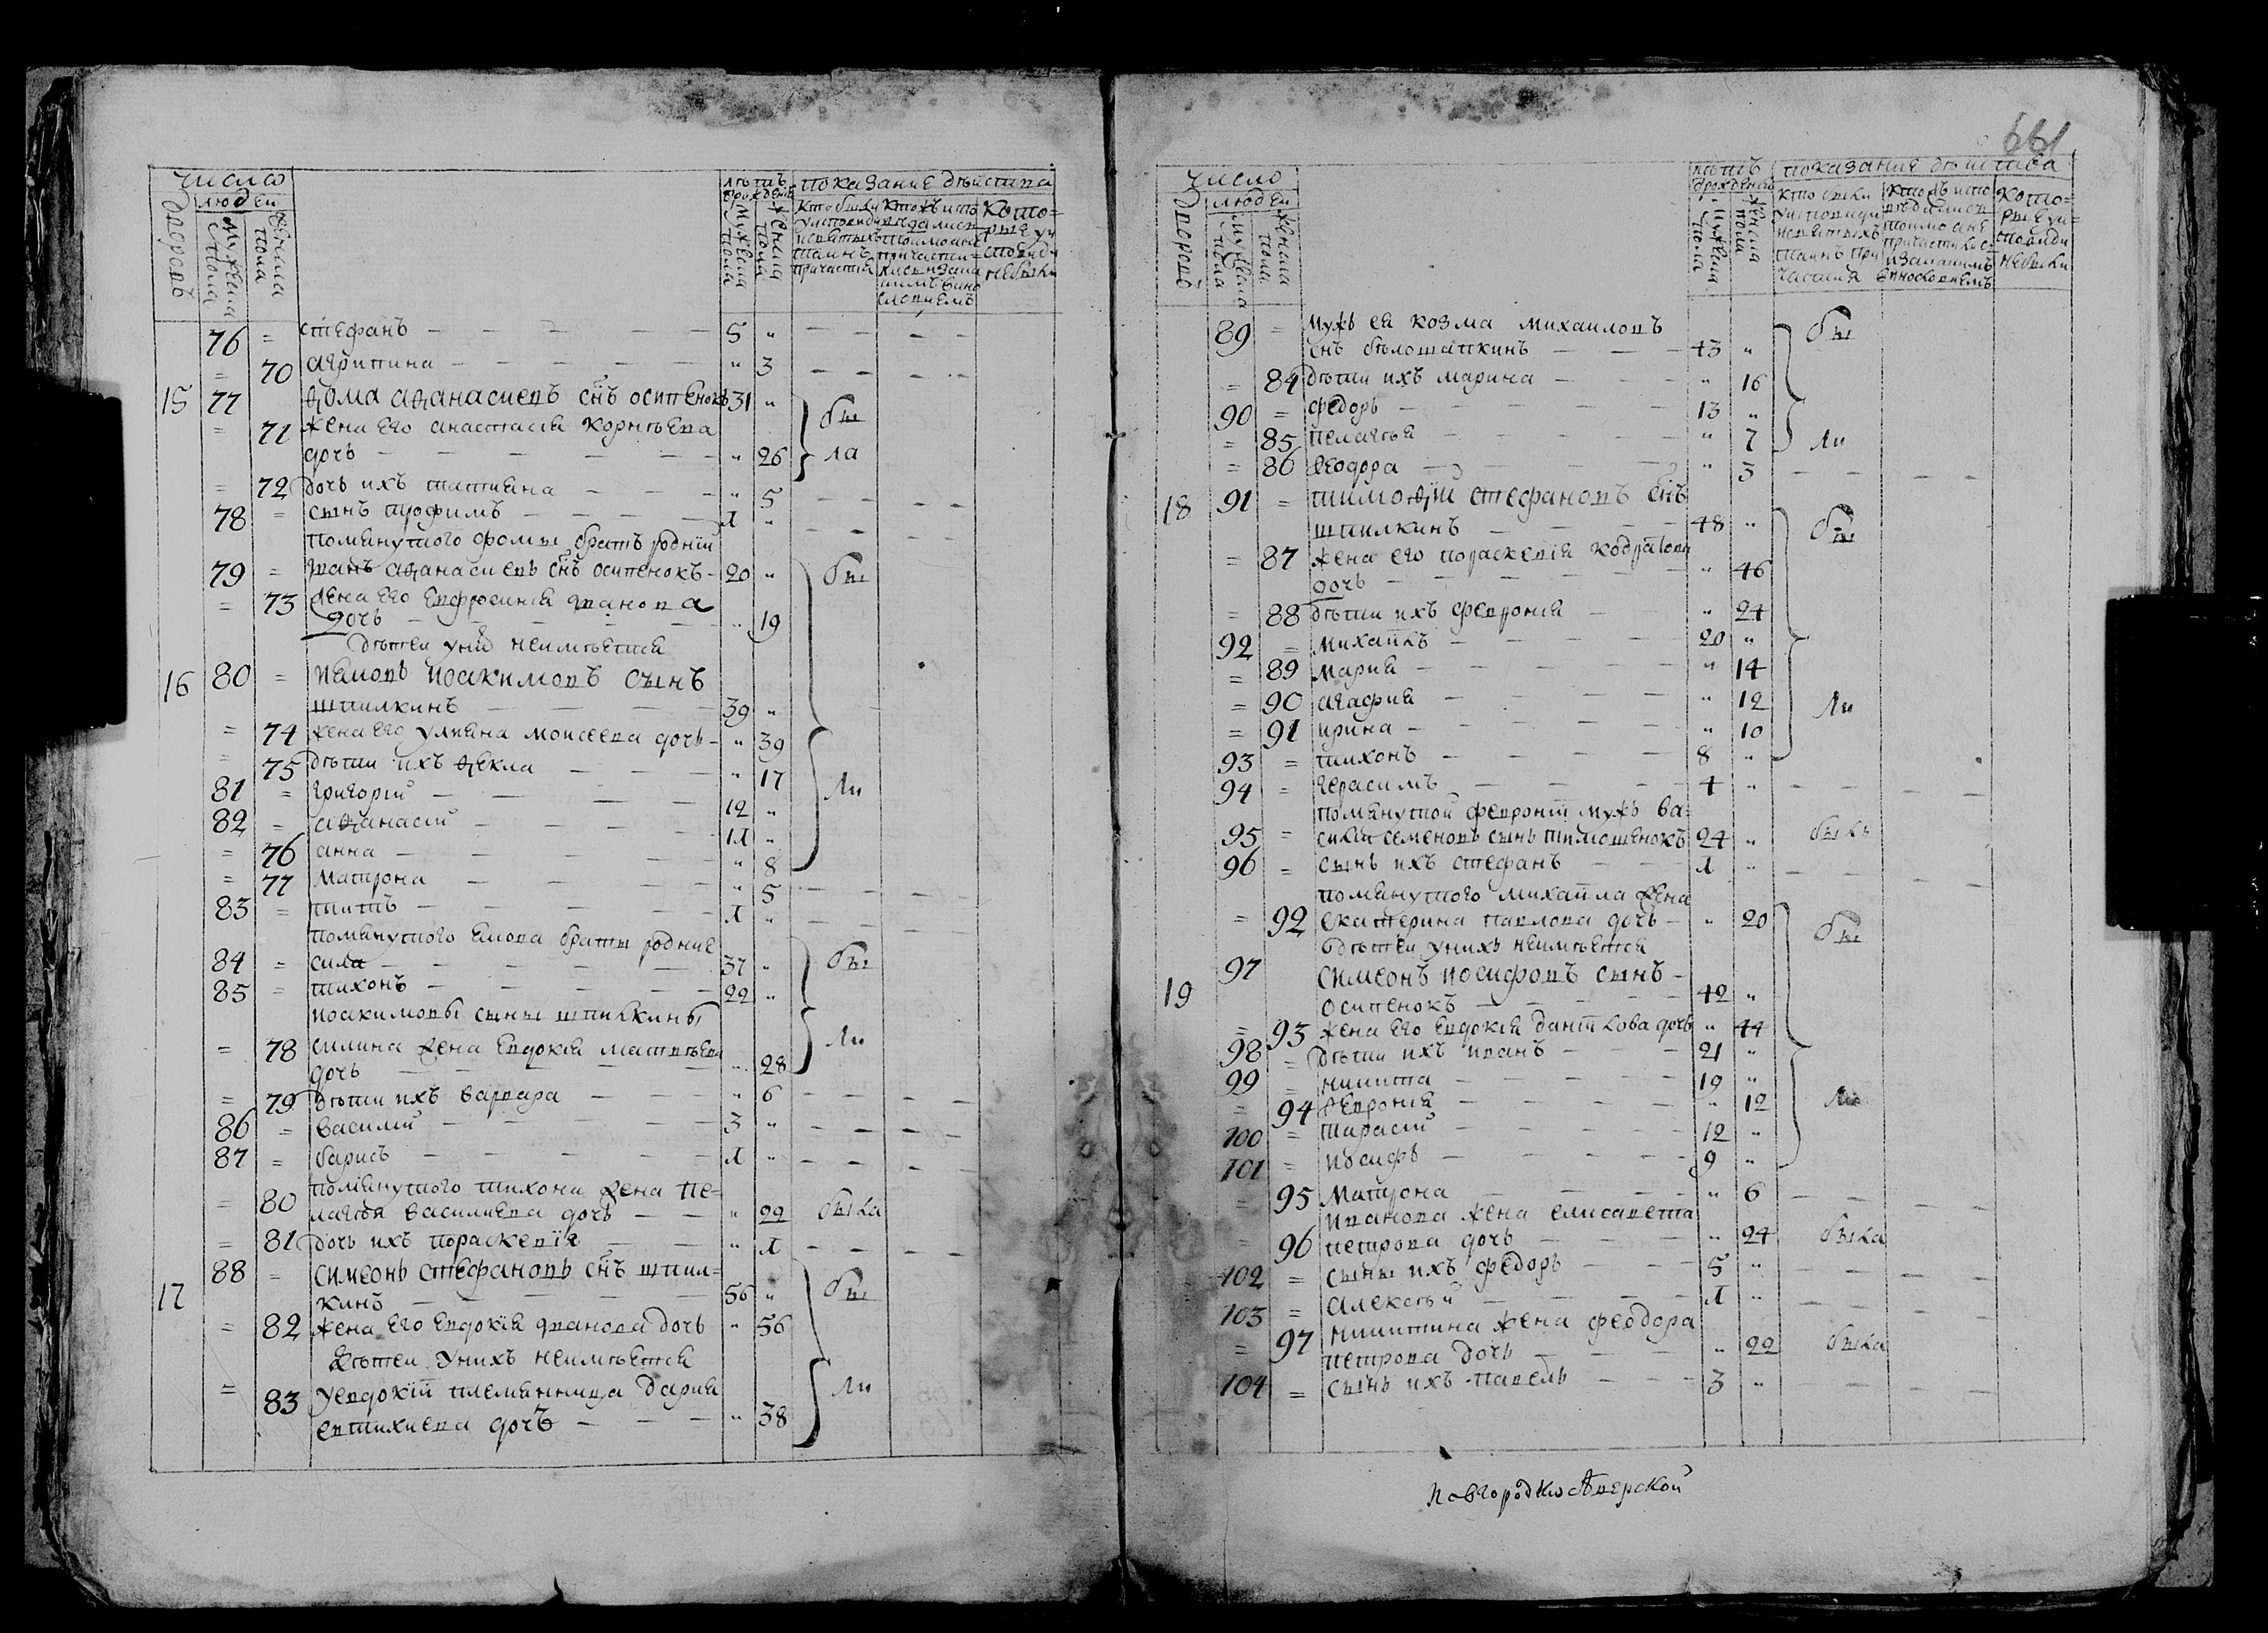 число
людей
дворовъ
мужеска пола
женска пола
лѣтъ от рожденія
мужеска пола
женска пола
показание дѣиства
кто были у исповѣди и святыхъ таинъ причастия
которые у исповѣди небыли
76 = стефанъ — 5 "
= 70 агрипина — " 3
15 77 ѳома аѳанасиевъ снъ осипенокъ 31 " } бы
= 71 жена его анастасия корнѣева
дочь — " 26 ла
= 72 дочь ихъ татияна — " 5
78 = сынъ трофимъ — 1 "
помянутого фомы братъ родніи
79 = иванъ аѳанасиевъ снъ осипенокъ - 20 " } бы
= 73 жена его евфросиния иванова
дочь — " 19
дѣтеи у них неимѣется
16 80 = иамовъ иоакимовъ сынъ
шпилкинъ — 39 "
= 74 жена его улияна моисеева дочь - " 39
= 75 дѣти ихъ ѳекла — " 17
81 = григории — 12 " ли
82 = аѳанасии — 11 "
= 76 анна — " 8
= 77 матрона — " 5
83 = титъ — 1 "
помянутого емова браты родние
84 = сила — 37 " } бы
85 = тихонъ — 22 "
иоакимовы сыны шпилкины
= 78 силина жена евдокия матвѣева ли
дочь — " 28
= 79 дѣти ихъ варвара — " 6
86 = василии — 3 "
87 = барисъ — 1 "
= 80 помянутого тихона жена пе-
лагѣя василиева дочь — " 22 была
= 81 дочь ихъ параскевія — " 1
17 88 = симеонъ стефановъ снъ шпил-
кинъ — 56 " } бы
= 82 жена его евдокия иванова дочь " 56
дѣтеи у нихъ неимѣется
= 83 у евдокии племянница дария ли
евтихиева дочъ — " 38
661
число
людеи
дворовъ
мужеска пола
женска пола
лѣтъ от рождения
мужеска пола
женска пола
показание дѣиства
кто были у исповѣди и святыхъ таинъ причастия
которые у исповѣди небыли
89 = мужъ ея козма михаиловъ } бы
снъ бѣлошапкинъ — 43 "
= 84 дѣти ихъ марина — " 16
90 = федоръ — 13 "
= 85 пелагѣя — " 7 ли
= 86 ѳеодора — " 3
18 91 = тимоѳии стефановъ снъ
шпилкинъ — 48 " } бы
= 87 жена его параскевия кодратова
дочь — " 46
= 88 дѣти ихъ феврония — " 24
92 = михаилъ — 20 "
= 89 мария — " 14
= 90 агафия — " 12 ли
= 91 ирина — " 10
93 = тихонъ — 8 "
94 = герасимъ — 4 "
помянутои февронии мужъ ва-
95 = силии семеновъ сынъ тимошенокъ 24 " былъ
96 = сынъ ихъ стефанъ — 1 "
помянутого михаила жена
= 92 екатерина павлова дочь — " 20 } бы
дѣтеи у нихъ неимѣется
19 97 симеонъ иосифовъ сынъ -
осипенокъ — 42 "
= 93 жена его евдокия данилова дочь " 44
98 = дѣти ихъ иванъ — 21 "
99 = никита — 19 "
= 94 ѳеврония — " 12 ли
100 = тарасии — 12 "
101 = иосифъ — 9 "
= 95 матрона — " 6
иванова жена елисавета
= 96 петрова дочь — " 24 была
102 = сыны ихъ федоръ — 5 "
103 = алексѣи — 1 "
= 97 никитина жена феодора
петрова дочь — " 22 была
104 = сынъ ихъ павелъ — 3 "